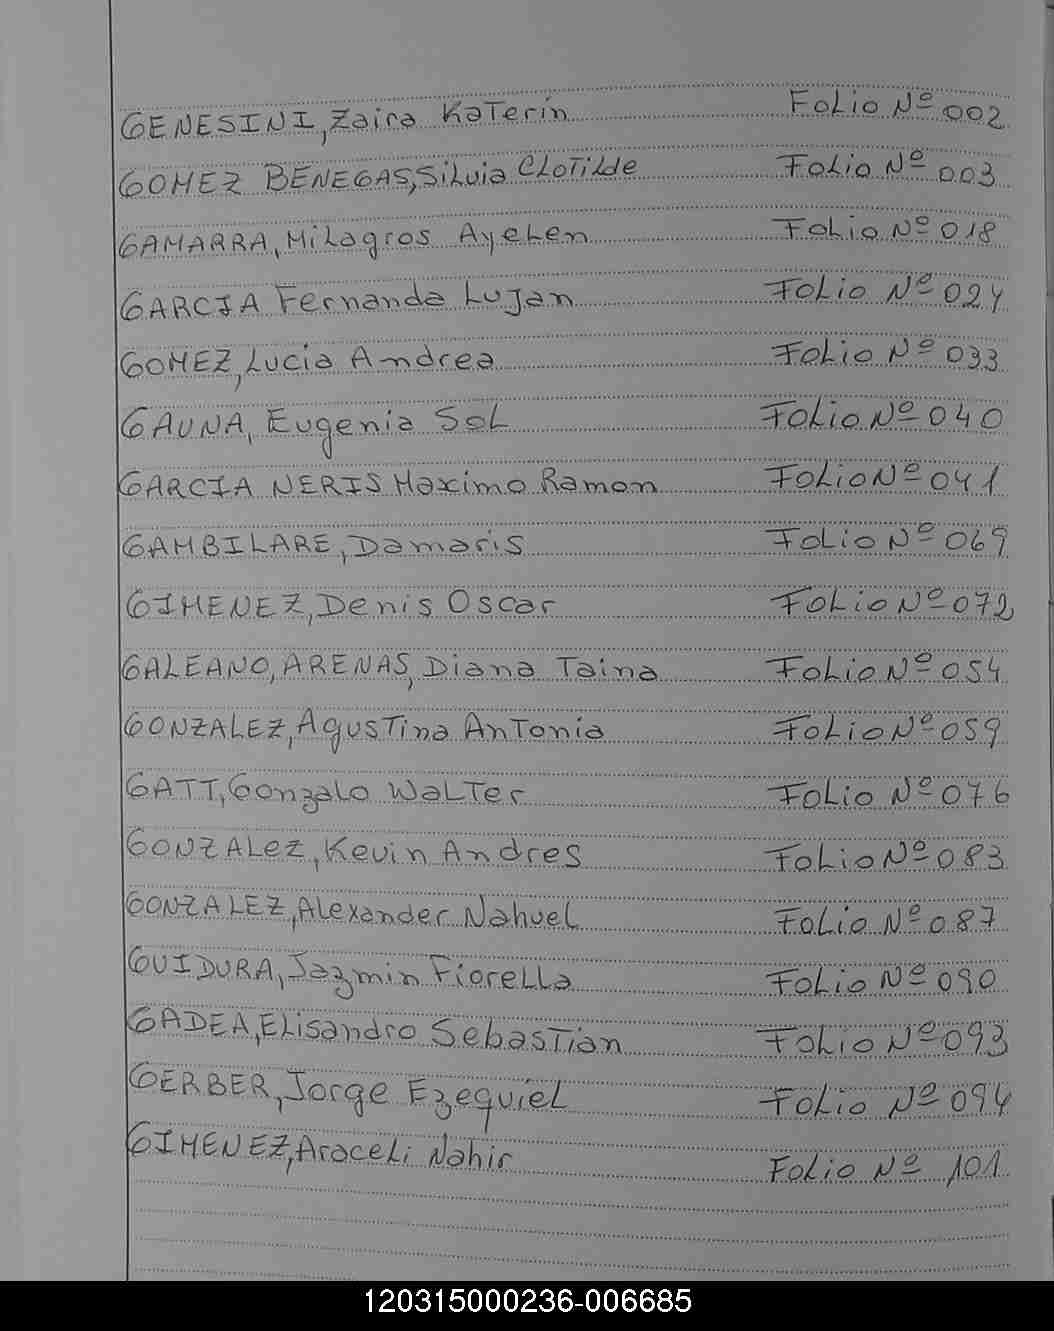 GENESINI, Zaira Katerin Folio Nº 002
GOMEZ BENEGAS, Silvia Clotilde Folio Nº 003
GAMARRA, Milagros Ayelen Folio Nº 018
GARCIA Fernanda Lujan Folio Nº 024
GOMEZ, Lucia Andrea Folio Nº 033
GAUNA, Eugenia Sol Folio Nº 040
GARCIA NERIS Maximo Ramon Folio Nº 041
GAMBILARE, Damaris Folio Nº 069
GIMENEZ, Denis Oscar Folio Nº 072
GALEANO, ARENAS, Diana Taina Folio Nº 054
GONZALEZ, Agustina Antonia Folio Nº 059
GATT, Gonzalo Walter Folio Nº 076
GONZALEZ, Kevin Andres Folio Nº 083
GONZALEZ, Alexander Nahuel Folio Nº 087
GUIDURA, Jazmin Fiorella Folio Nº 090
GADEA, Elisandro Sebastian Folio Nº 093
GERBER, Jorge Ezequiel Folio Nº 094
GIMENEZ, Araceli Nahir Folio Nº 101
120315000236-006685